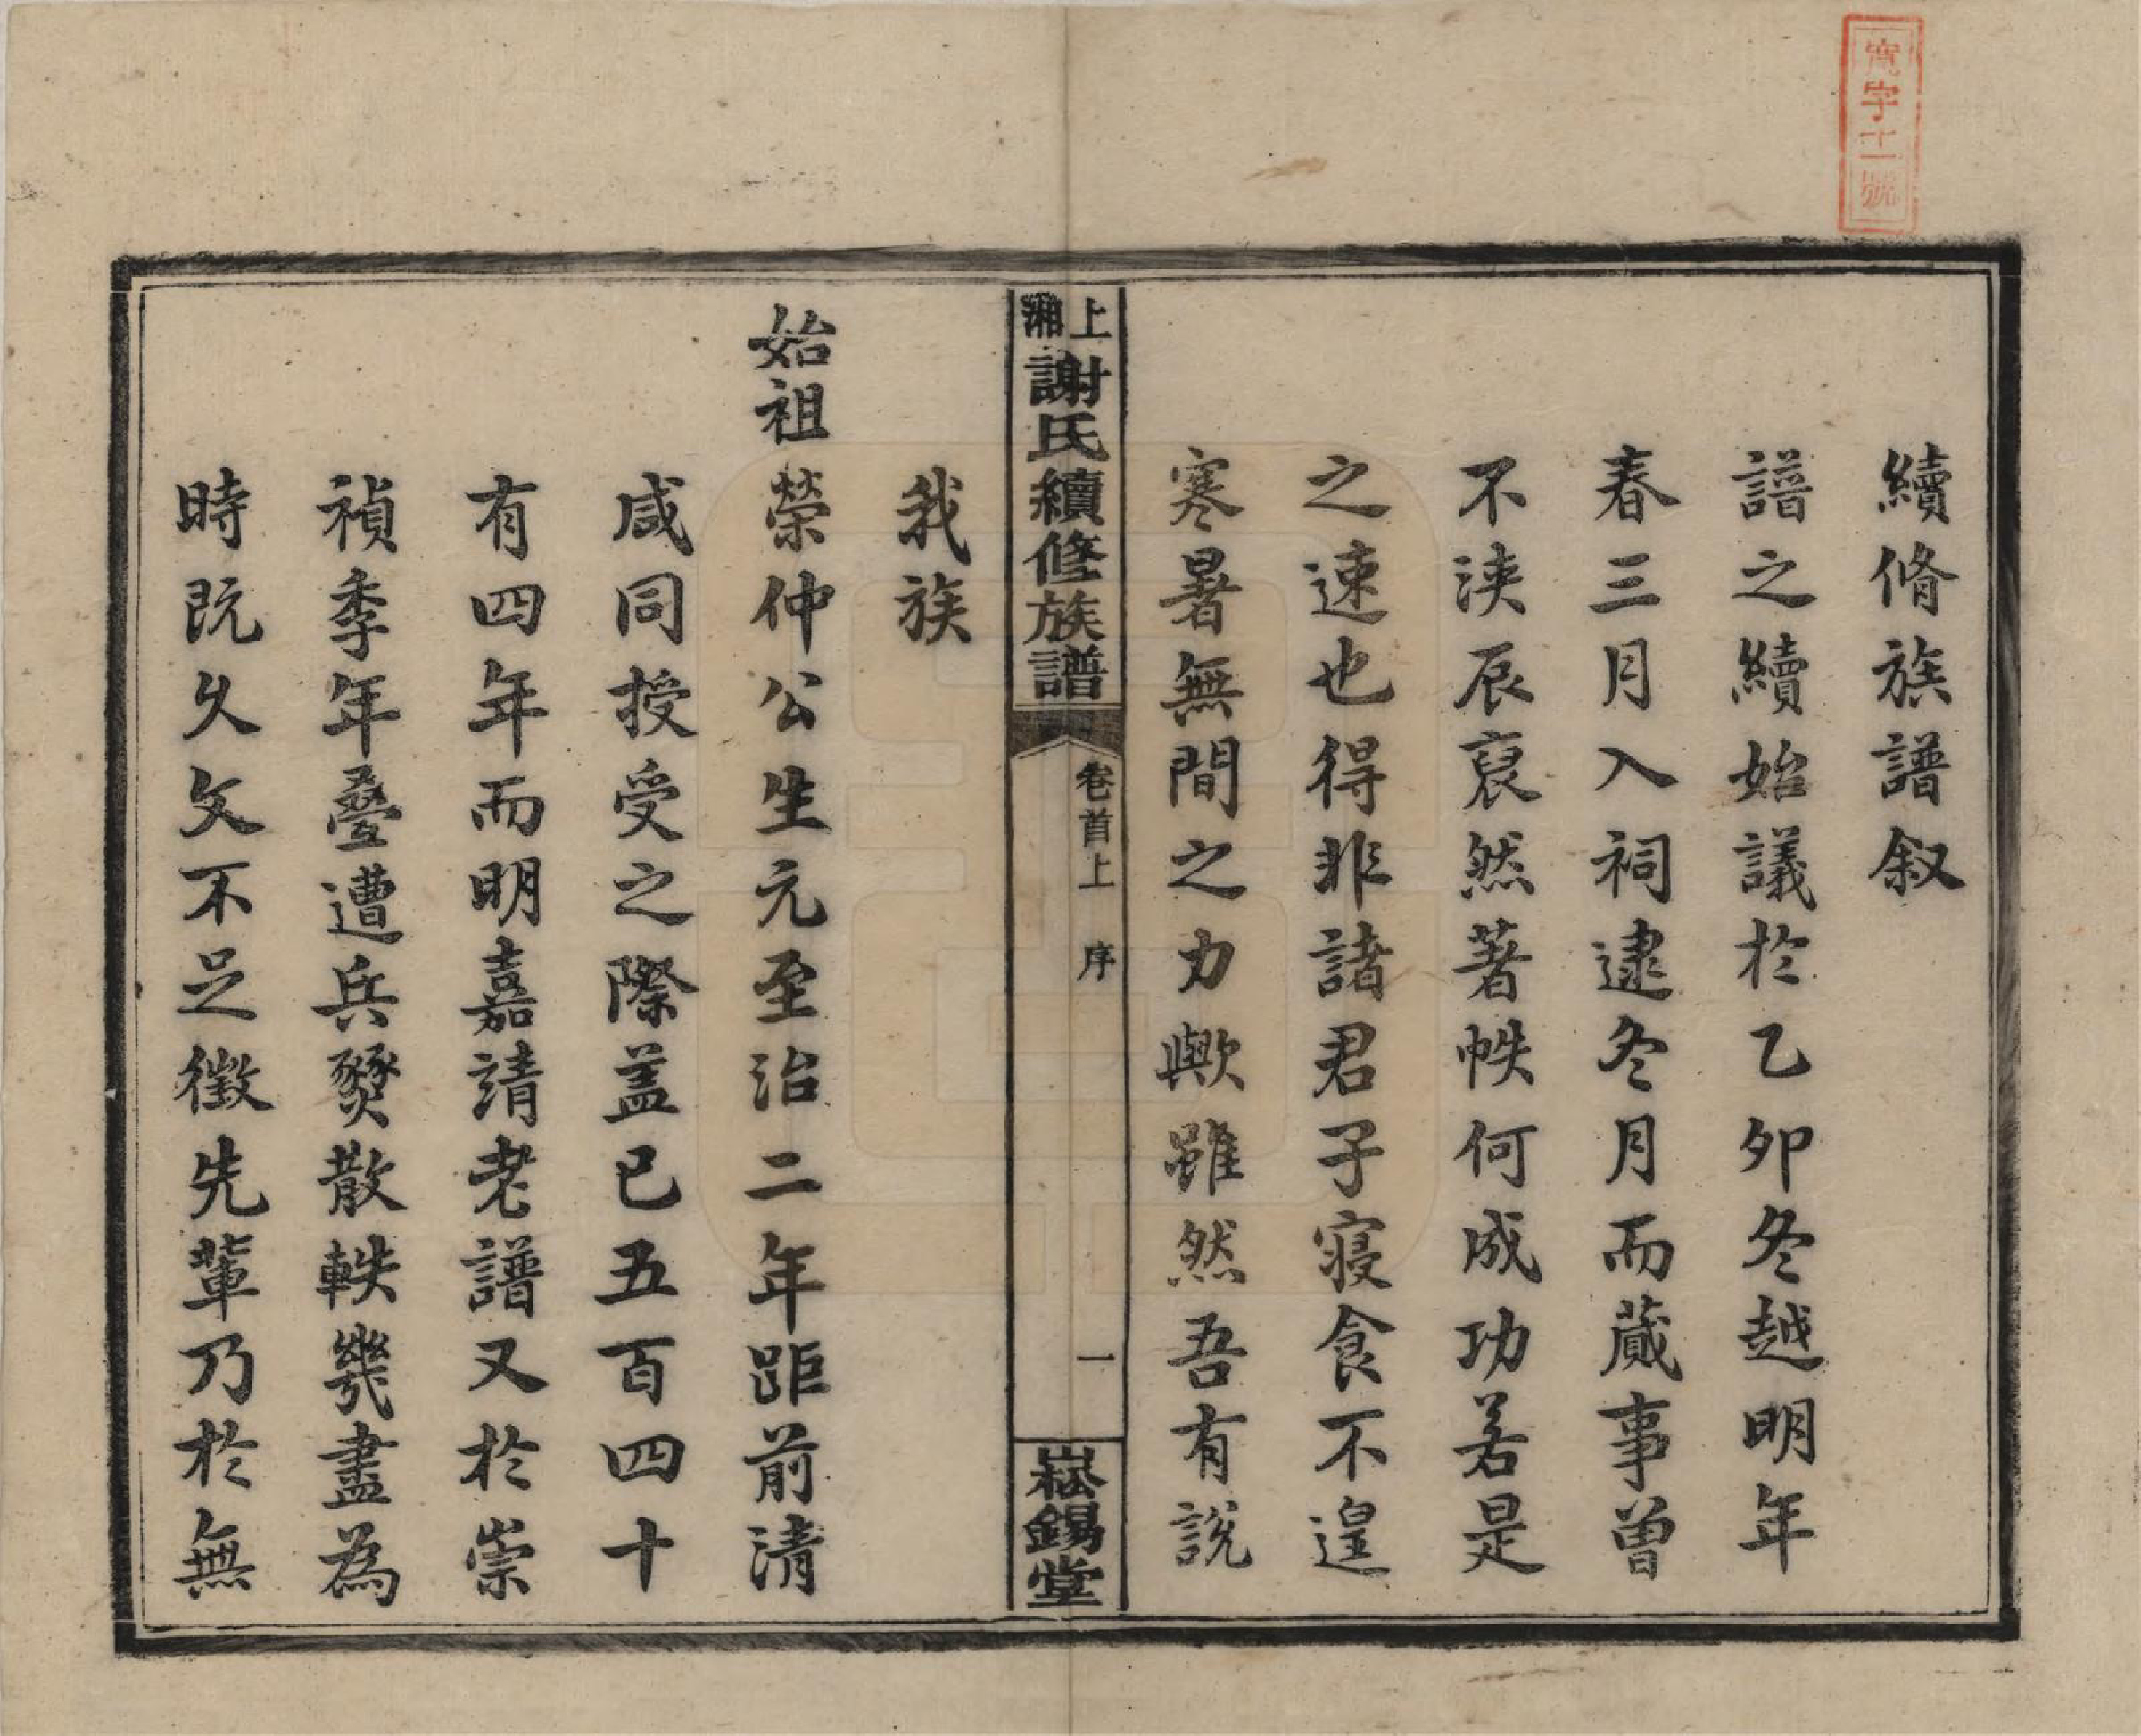 續脩族譜叙
譜之續始議於乙卯冬越明年
春三月入祠逮冬月而蕆事曾
不浹辰裒然著帙何成功若是
之速也得非諸君子寢食不遑
寒暑無間之力歟雖然吾有說
上湘謝氏續修族譜
卷首上 序
一
崧錫堂
我族
始祖榮仲公生元至治二年距前清
咸同授受之際盖已五百四十
有四年而明嘉請老譜又於崇
禎季年疊遭兵燹散軼幾盡為
時既久文不足徵先輩乃於無
字十一號